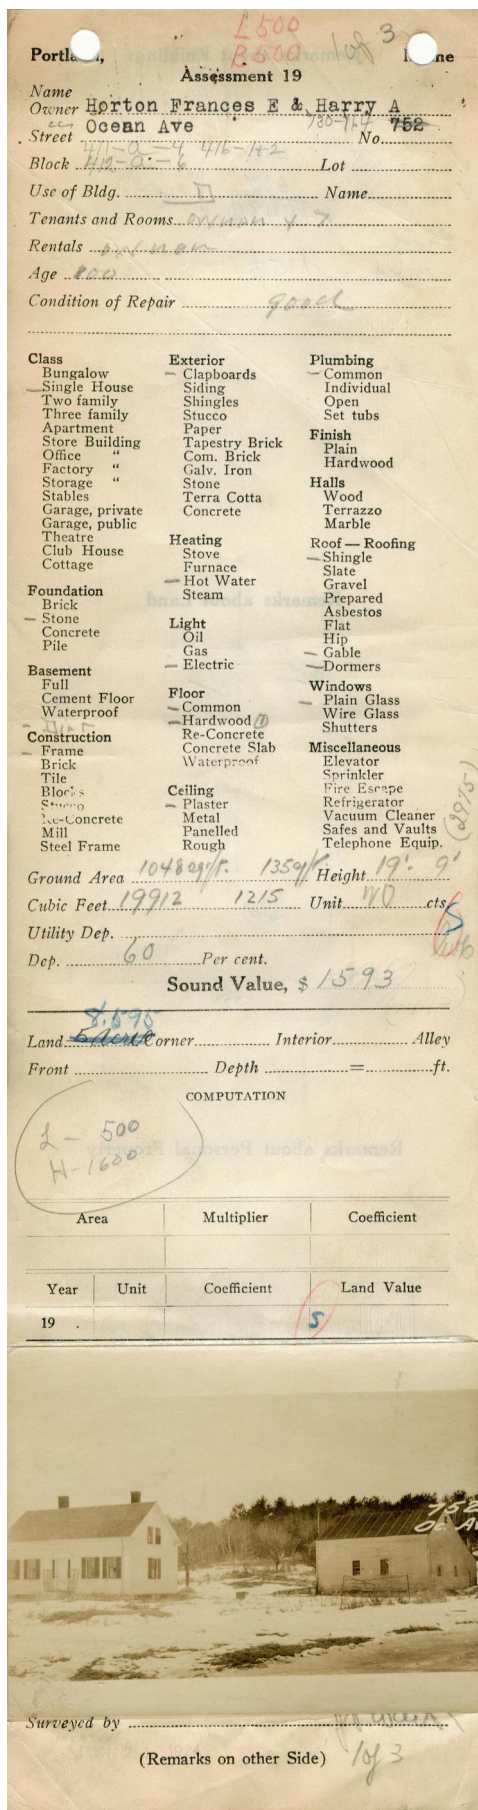 L500
B500
1 of 3
Portland, Maine
Assessment 19
Name
Owner Horton Frances E & Harry A
730-764
Street Ocean Ave No. 752
411-A-4 416-1+2
Block 412-A-6 Lot
Use of Bldg. Name
Tenants and Rooms 7
Rentals
Age 100
Condition of Repair good
Class
Bungalow
Single House
Two family
Three family
Apartment
Store Building
Office "
Factory "
Storage "
Stables
Garage, private
Garage, public
Theatre
Club House
Cottage
Foundation
Brick
Stone
Concrete
Pile
Basement
Full
Cement Floor
Waterproof
Construction
Frame
Brick
Tile
Blocks
Stucco
Re-Concrete
Mill
Steel Frame
Exterior
Clapboards
Siding
Shingles
Stucco
Paper
Tapestry Brick
Com. Brick
Galv. Iron
Stone
Terra Cotta
Concrete
Heating
Stove
Furnace
Hot Water
Steam
Light
Oil
Gas
Electric
Floor
Common
Hardwood (1)
Re-Concrete
Concrete Slab
Waterproof
Ceiling
Plaster
Metal
Panelled
Rough
Plumbing
Common
Individual
Open
Set tubs
Finish
Plain
Hardwood
Halls
Wood
Terrazzo
Marble
Roof — Roofing
Shingle
Slate
Gravel
Prepared
Asbestos
Flat
Hip
Gable
Dormers
Windows
Plain Glass
Wire Glass
Shutters
Miscellaneous
Elevator
Sprinkler
Fire Escape
Refrigerator
Vacuum Cleaner
Safes and Vaults
Telephone Equip.
(2975)
Ground Area 1048 sq/ft. 135 sq/ft Height 19'- 9'
Cubic Feet 19912 1215 Unit 20 cts.
S
Utility Dep.
Dep. 60 Per cent.
Sound Value, $ 1593
8.595
Land 5 acres Corner Interior Alley
Front Depth = ft.
COMPUTATION
L - 500
H-1600
Area Multiplier Coefficient
Year Unit Coefficient Land Value
19 . S
752
Oc. A
Surveyed by
(Remarks on other Side) 1 of 3